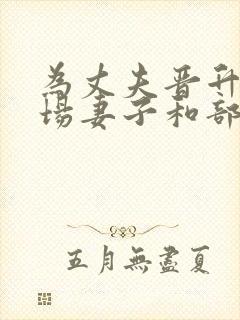 為丈夫晋升
場妻子和部
五月無盡夏